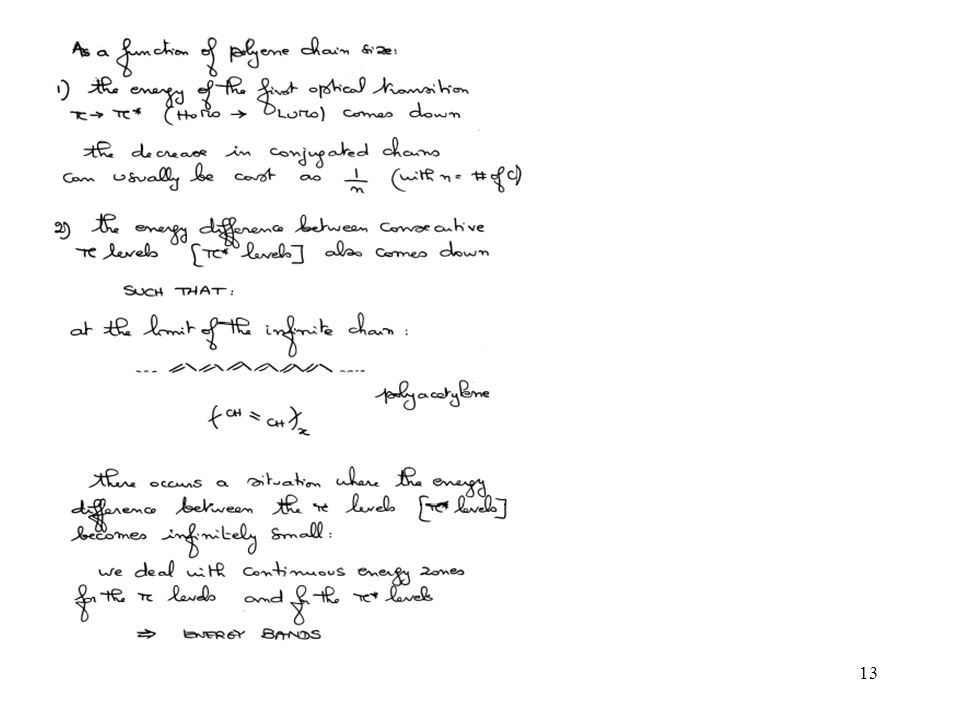 As a function of polyene chain size:
1) the energy of the first optical transition
π → π* (HOMO → LUMO) comes down
the decrease in conjugated chains
can usually be cast as 1/n (with n = # of C)
2) the energy difference between consecutive
π levels [π* levels] also comes down
SUCH THAT:
at the limit of the infinite chain:
... ....
polyacetylene
(CH = CH)x
there occurs a situation where the energy
difference between the π levels [π* levels]
becomes infinitely small:
we deal with continuous energy zones
for the π levels and for the π* levels
⇒ ENERGY BANDS
13